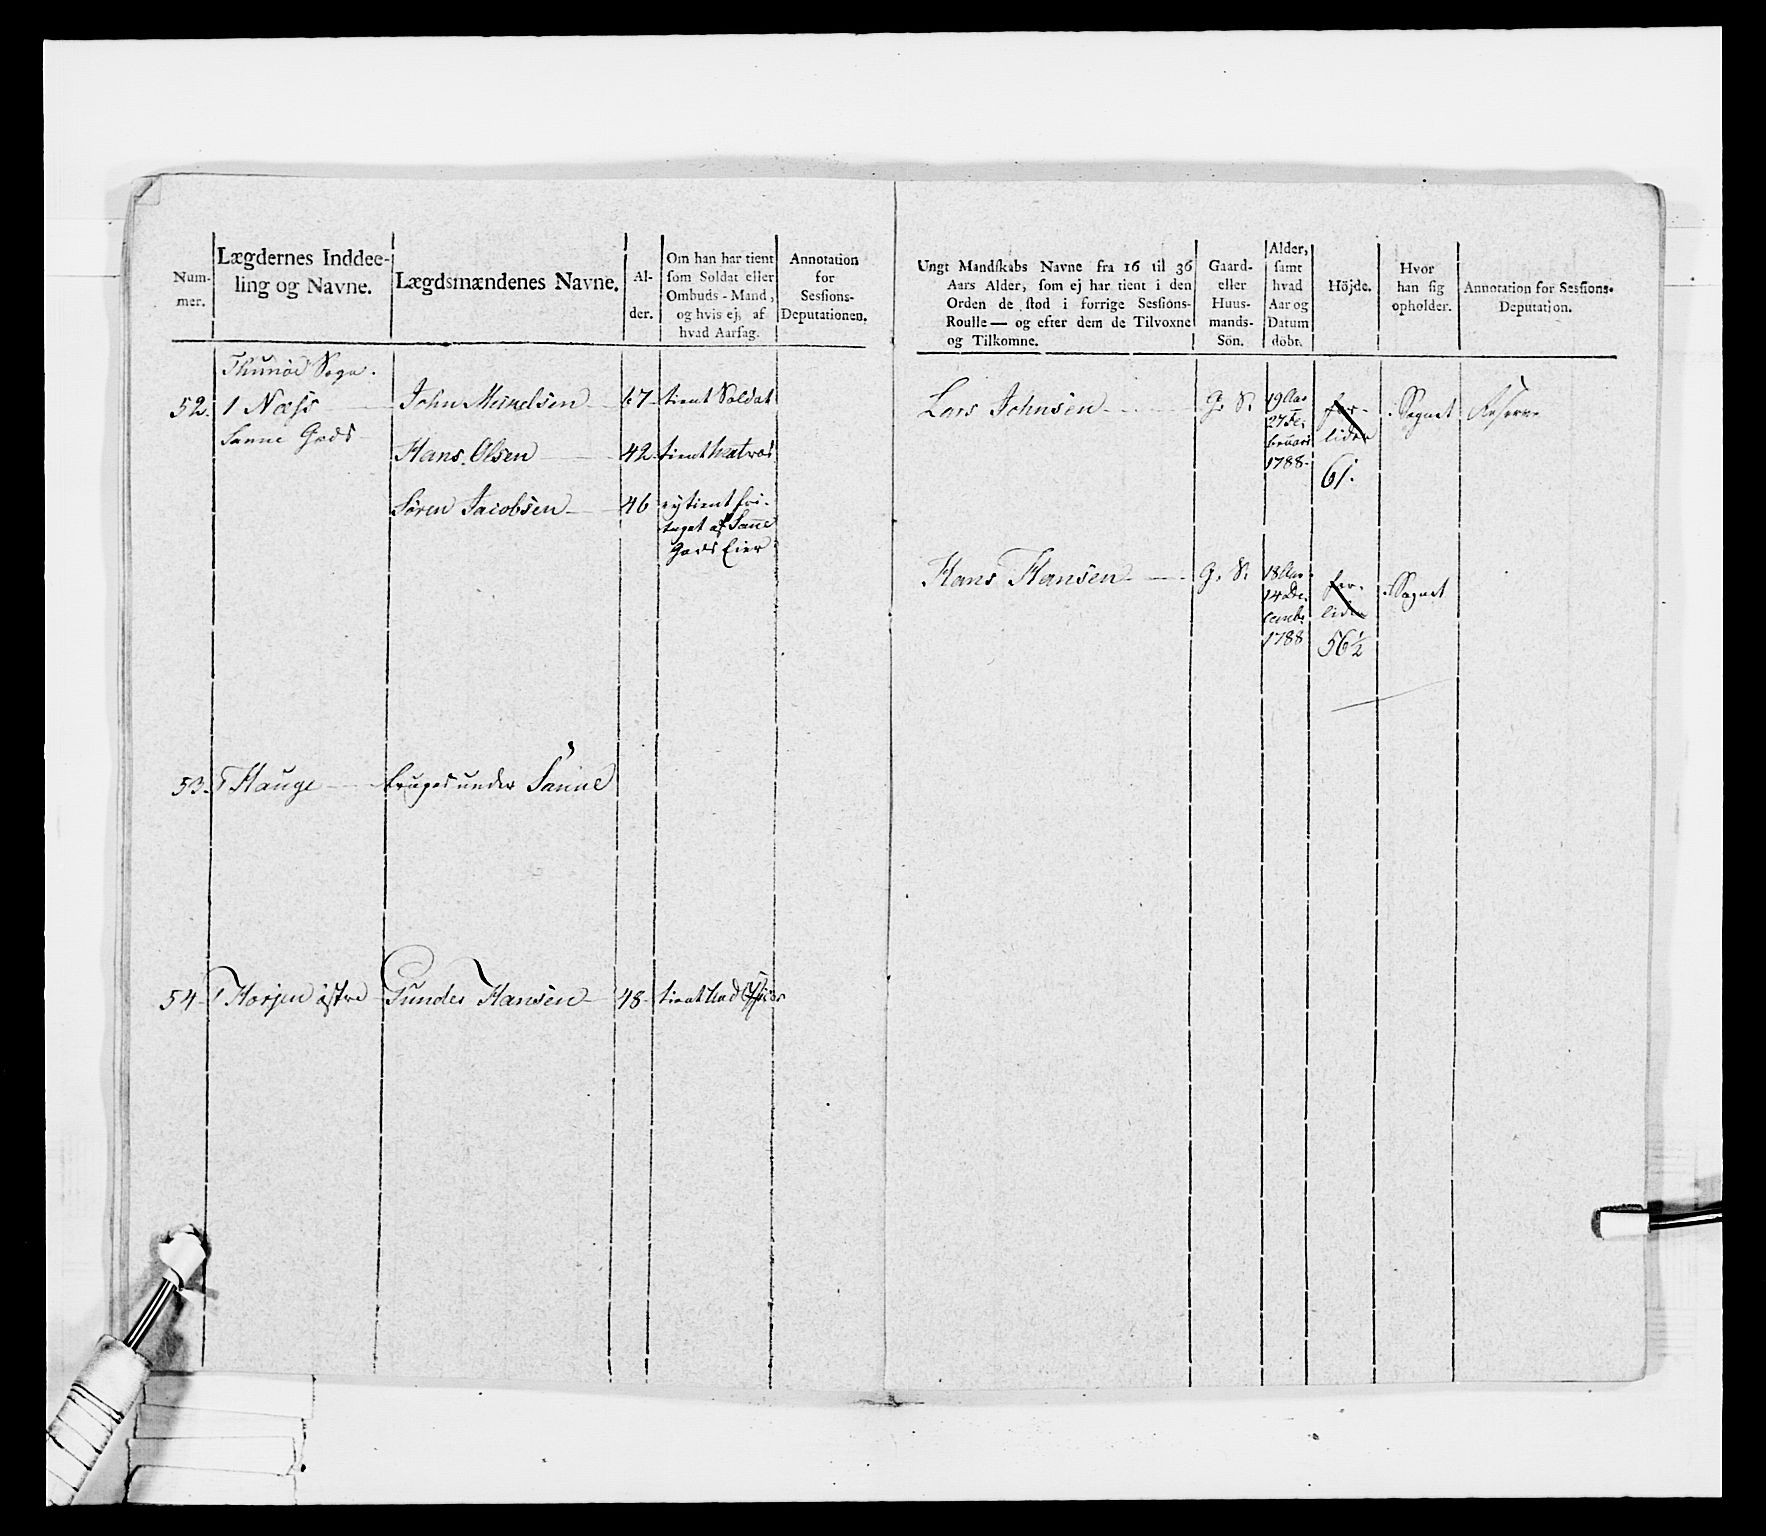 Num-
mer.
Lægdernes Inddee-
ling og Navne.
Lægdsmændenes Navne.
Al-
der.
Om han har tient
som Soldat eller
Ombuds-Mand,
og hvis ej, af
hvad Aarsag.
Annotation
for
Sessions-
Deputationen.
Thunöe Sogn.
52. 1 Næss John Mikkelsen 67 tient Soldat
Sanne Gods
Hans Olsen 42 tient
Søren Jacobsen 46 ej tient fri-
taget af Sanne
Gods Eier
53. 1 Hauge bruges under Sanne
54 1 Horjen østre Gunder Hansen 48 tient
Ungt Mandskabs Navne fra 16 til 36
Aars Alder, som ej har tient i den
Orden de stod i forrige Sessions-
Roulle — og efter dem de Tilvoxne
og Tilkomne.
Gaard-
eller
Huus-
mands-
Sön.
Alder,
samt
hvad
Aar og
Datum
döbt.
Höjde.
Hvor
han sig
opholder.
Annotation for Sessions-
Deputation.
Lars Johnsen G. S. 19 Aar for- i Sognet Reserve
27 Fe- liden
bruari
1788 61.
Hans Hansen G. S. 18 Aar for- i Sognet
14 De- liden
cembr
1788 56½